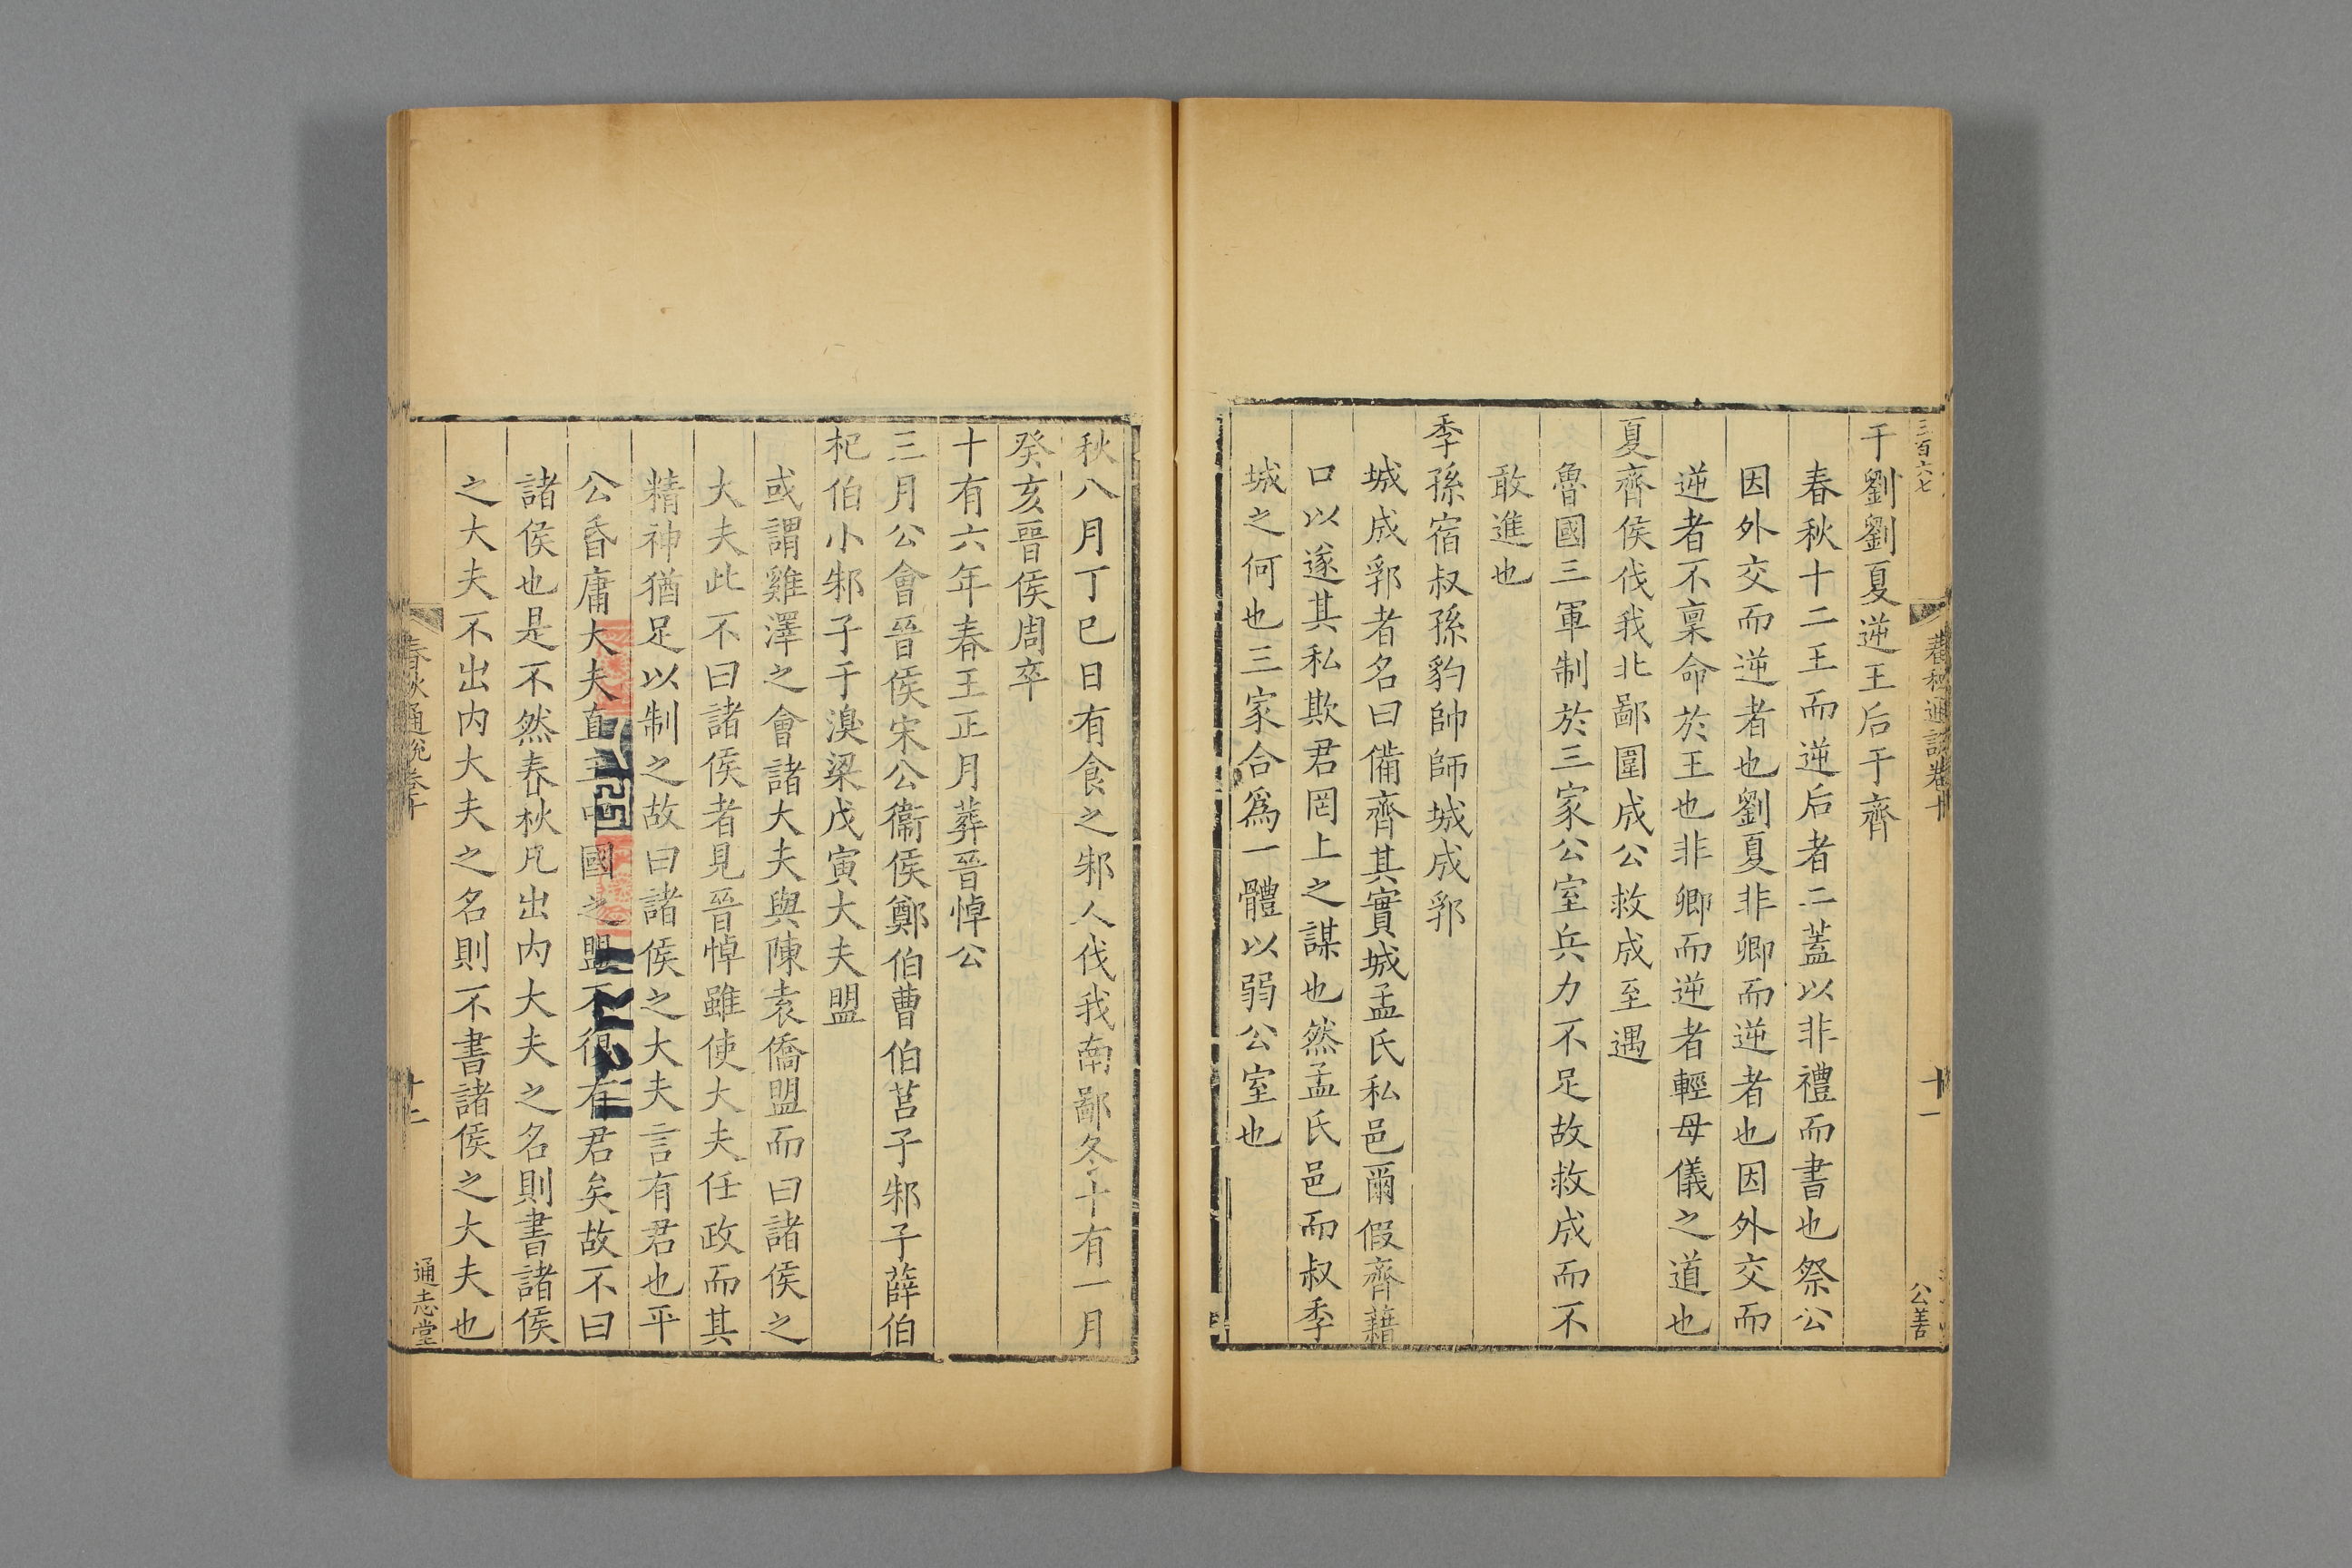 三百六七
春秋通說卷十
十一
公善
于劉劉夏逆王后于齊
春秋十二王而逆后者二蓋以非禮而書也祭公
因外交而逆者也劉夏非卿而逆者也因外交而
逆者不稟命於王也非卿而逆者輕母儀之道也
夏齊侯伐我北鄙圍成公救成至遇
魯國三軍制於三家公室兵力不足故救成而不
敢進也
季孫宿叔孫豹帥師城成郛
城成郛者名曰備齊其實城孟氏私邑爾假齊藉
口以遂其私欺君罔上之謀也然孟氏邑而叔季
城之何也三家合爲一體以弱公室也
秋八月丁巳日有食之邾人伐我南鄙冬十有一月
癸亥晉侯周卒
十有六年春王正月葬晉悼公
三月公會晉侯宋公衞侯鄭伯曹伯莒子邾子薛伯
杞伯小邾子于溴梁戊寅大夫盟
或謂雞澤之會諸大夫與陳袁僑盟而曰諸侯之
大夫此不曰諸侯者見晉悼雖使大夫任政而其
精神猶足以制之故曰諸侯之大夫言有君也平
公昏庸大夫直主中國之盟不復有君矣故不曰
諸侯也是不然春秋凡出內大夫之名則書諸侯
之大夫不出內大夫之名則不書諸侯之大夫也
春秋通說卷十
十二
通志堂